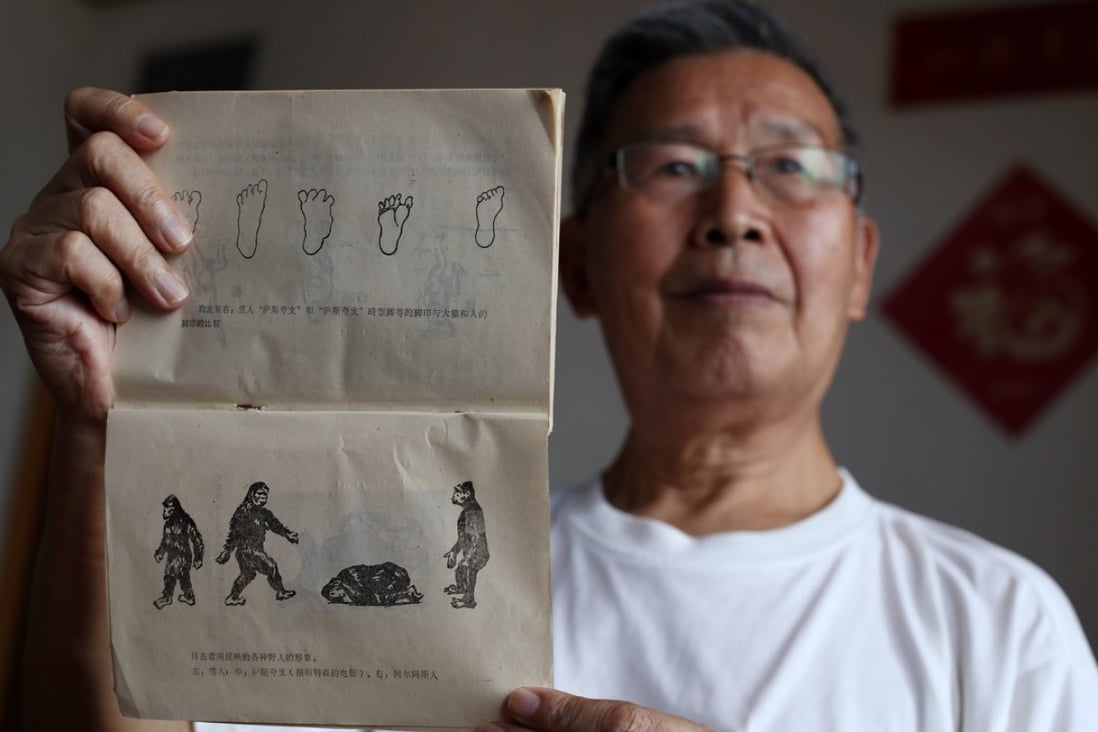 自左至右：雪人“萨斯夸支”和“萨斯夸支”畸型脚等的脚印与大猿和人的
脚印的比较
目击者所反映的各种野人的形象。
左：雪人；中：萨斯夸支（据帕特森的电影）。右：阿尔玛斯人